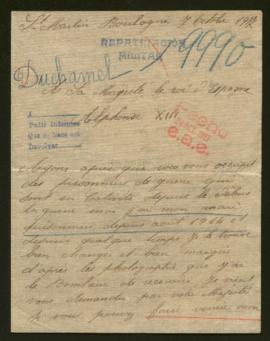 St Martin Boulogne 7 octobre 191
REPATRIACIÓN
MILITAR
9990
Duchamel
A Sa Majesté le roi d'Espagne
Alphonse XIII
A
Pedir informes
que se
Devolver
e.a.e.
vous vous occupez
des prisonniers de guerre qui
sont en captivité depuis le début
la guerre mon
prisonnier depuis août 1914 et
depuis quelque temps je le trouve
bien changé et bien
d'après les photographies que j'ai
de recevoir. Je viens
vous demander par votre Majesté
si vous pouvez faire venir mon